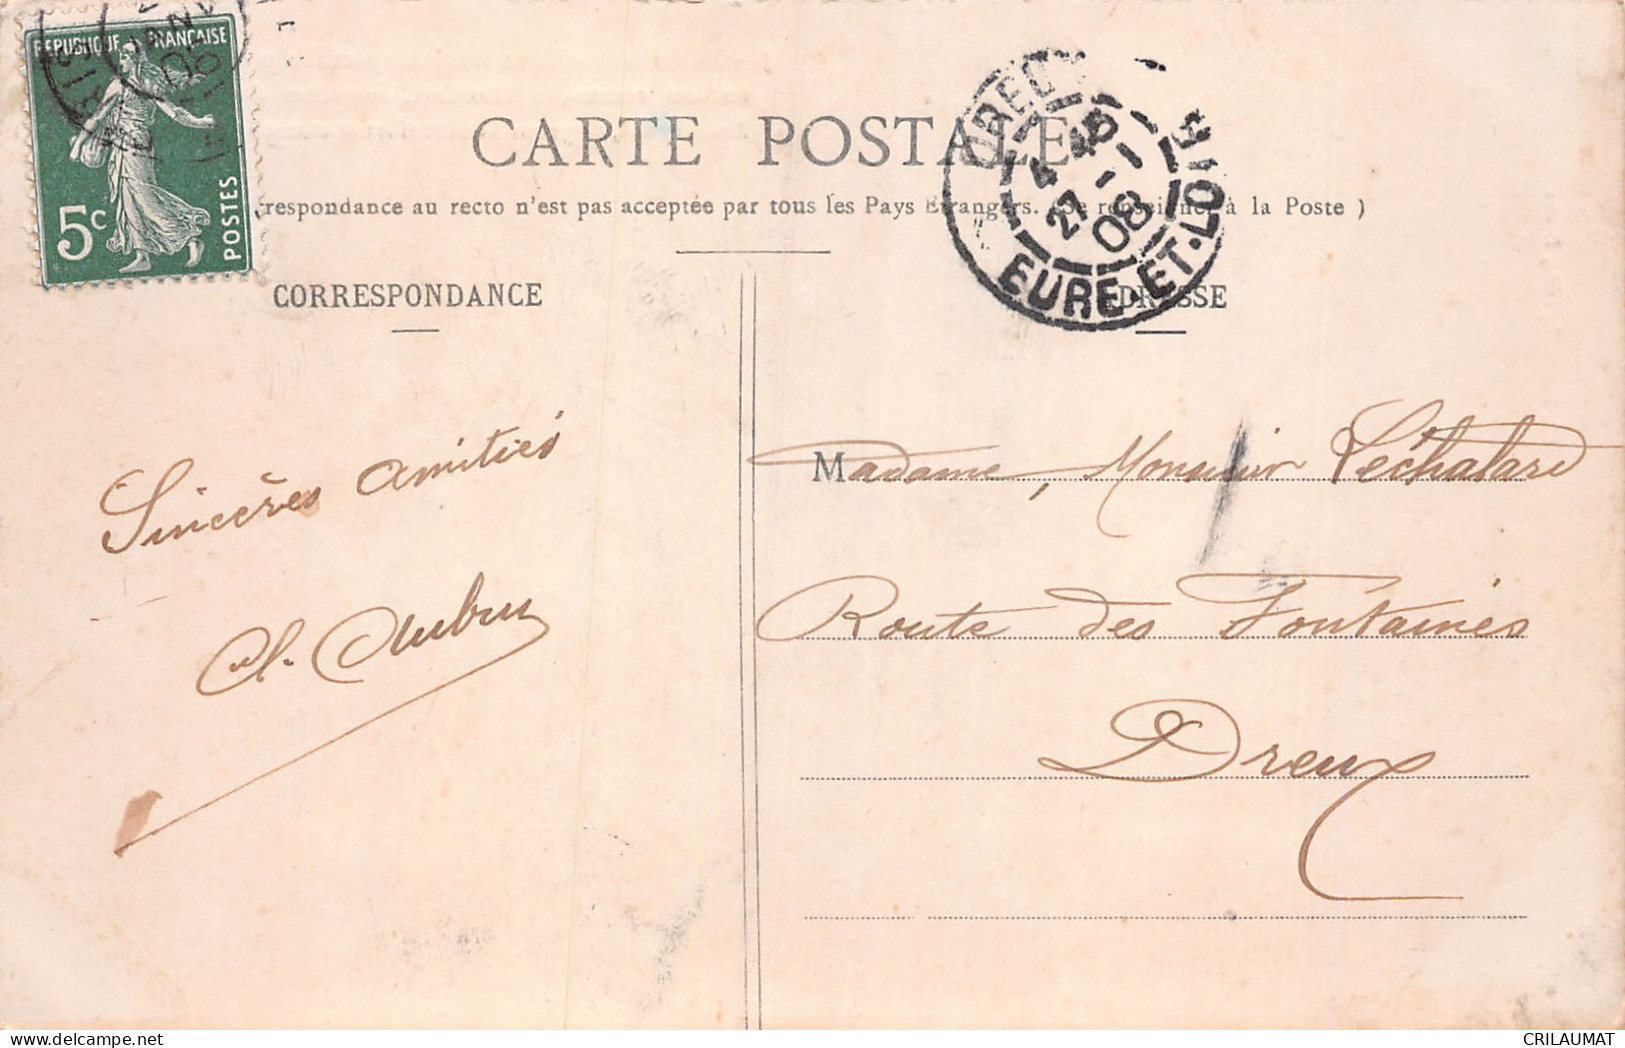 REPUBLIQUE FRANÇAISE
5c
POSTES
CARTE POSTALE
respondance au recto n'est pas acceptée par tous les Pays Etrangers. (Se renseigner à la Poste )
DREUX
4 45
27 - 1
08
EURE-ET-LOIR
CORRESPONDANCE
ADRESSE
Sincères amitiés
Madame, Monsieur Léchalard
Route des Fontaines
Dreux
CRILAUMAT